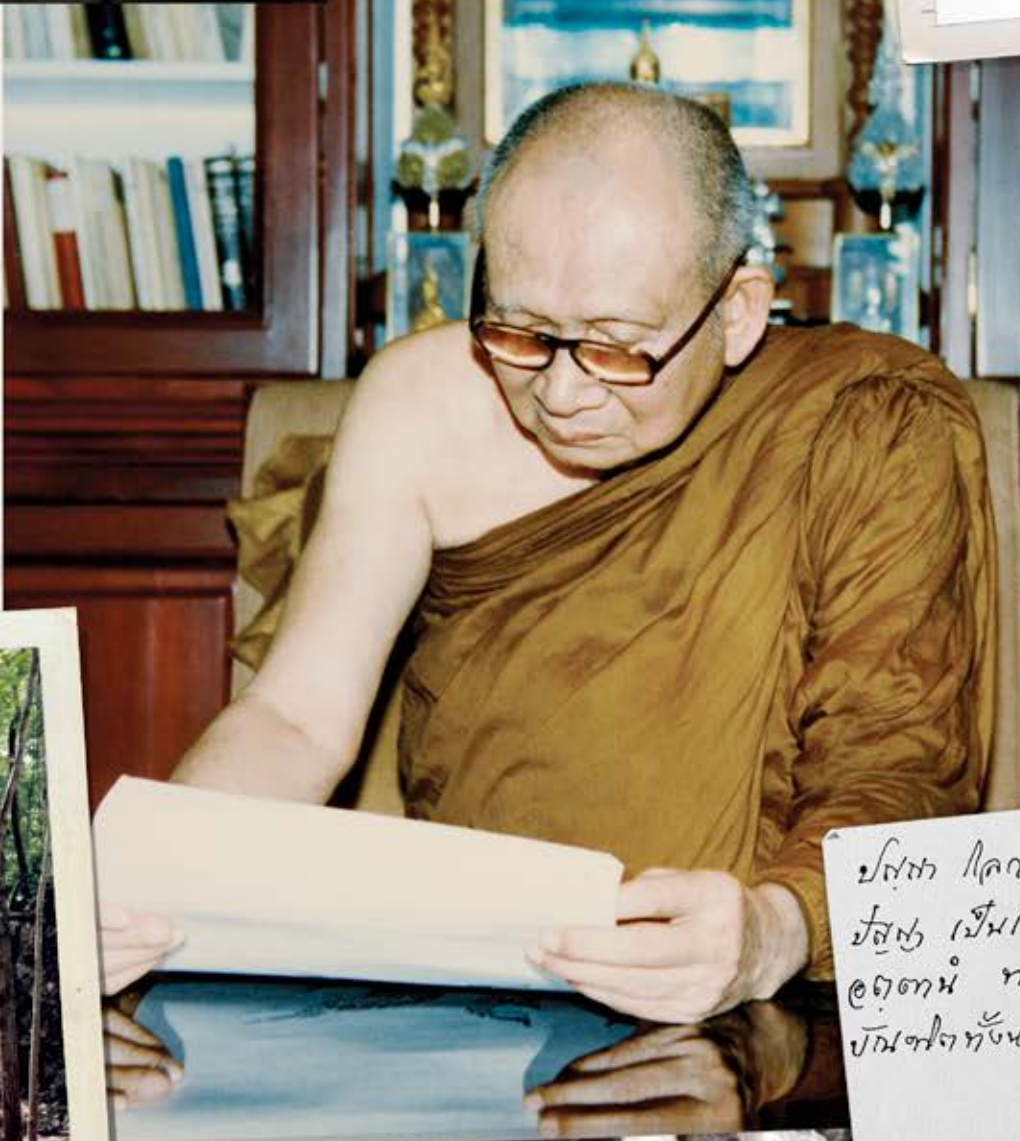 ปญฺญา โลก
ปัญญา เป็นแ
อตฺตานํ ท
บัณฑิตทั้งห